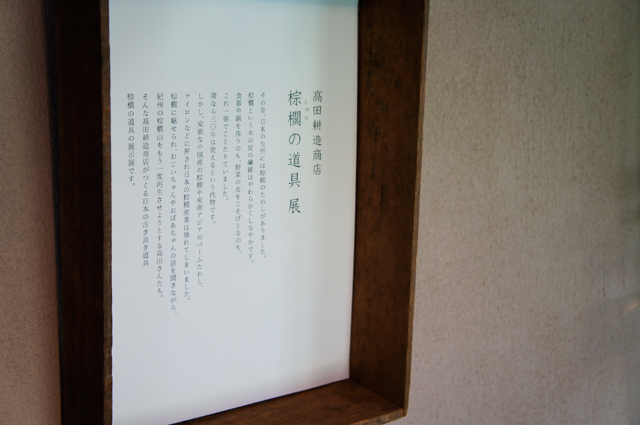 髙田耕造商店
棕櫚の道具展
しゅろ
その昔、日本の台所には棕櫚のたわしがありました。
棕櫚という木の皮の繊維はやわらかくしなやかです。
食器や鍋を洗うのも、野菜の皮をこそげとるのも、
これ一個でことたりていました。
箒なら三〇年は使えるという代物です。
しかし、安価な中国産の棕櫚や東南アジアのパームたわし、
ナイロンなどに押され日本の棕櫚産業は廃れてしまいました。
棕櫚に魅せられ、おじいちゃんやおばあちゃんの話を聞きながら、
紀州の棕櫚山をもう一度再生させようとする髙田さんたち。
そんな髙田耕造商店がつくる日本の古き良き道具
棕櫚の道具の展示展です。